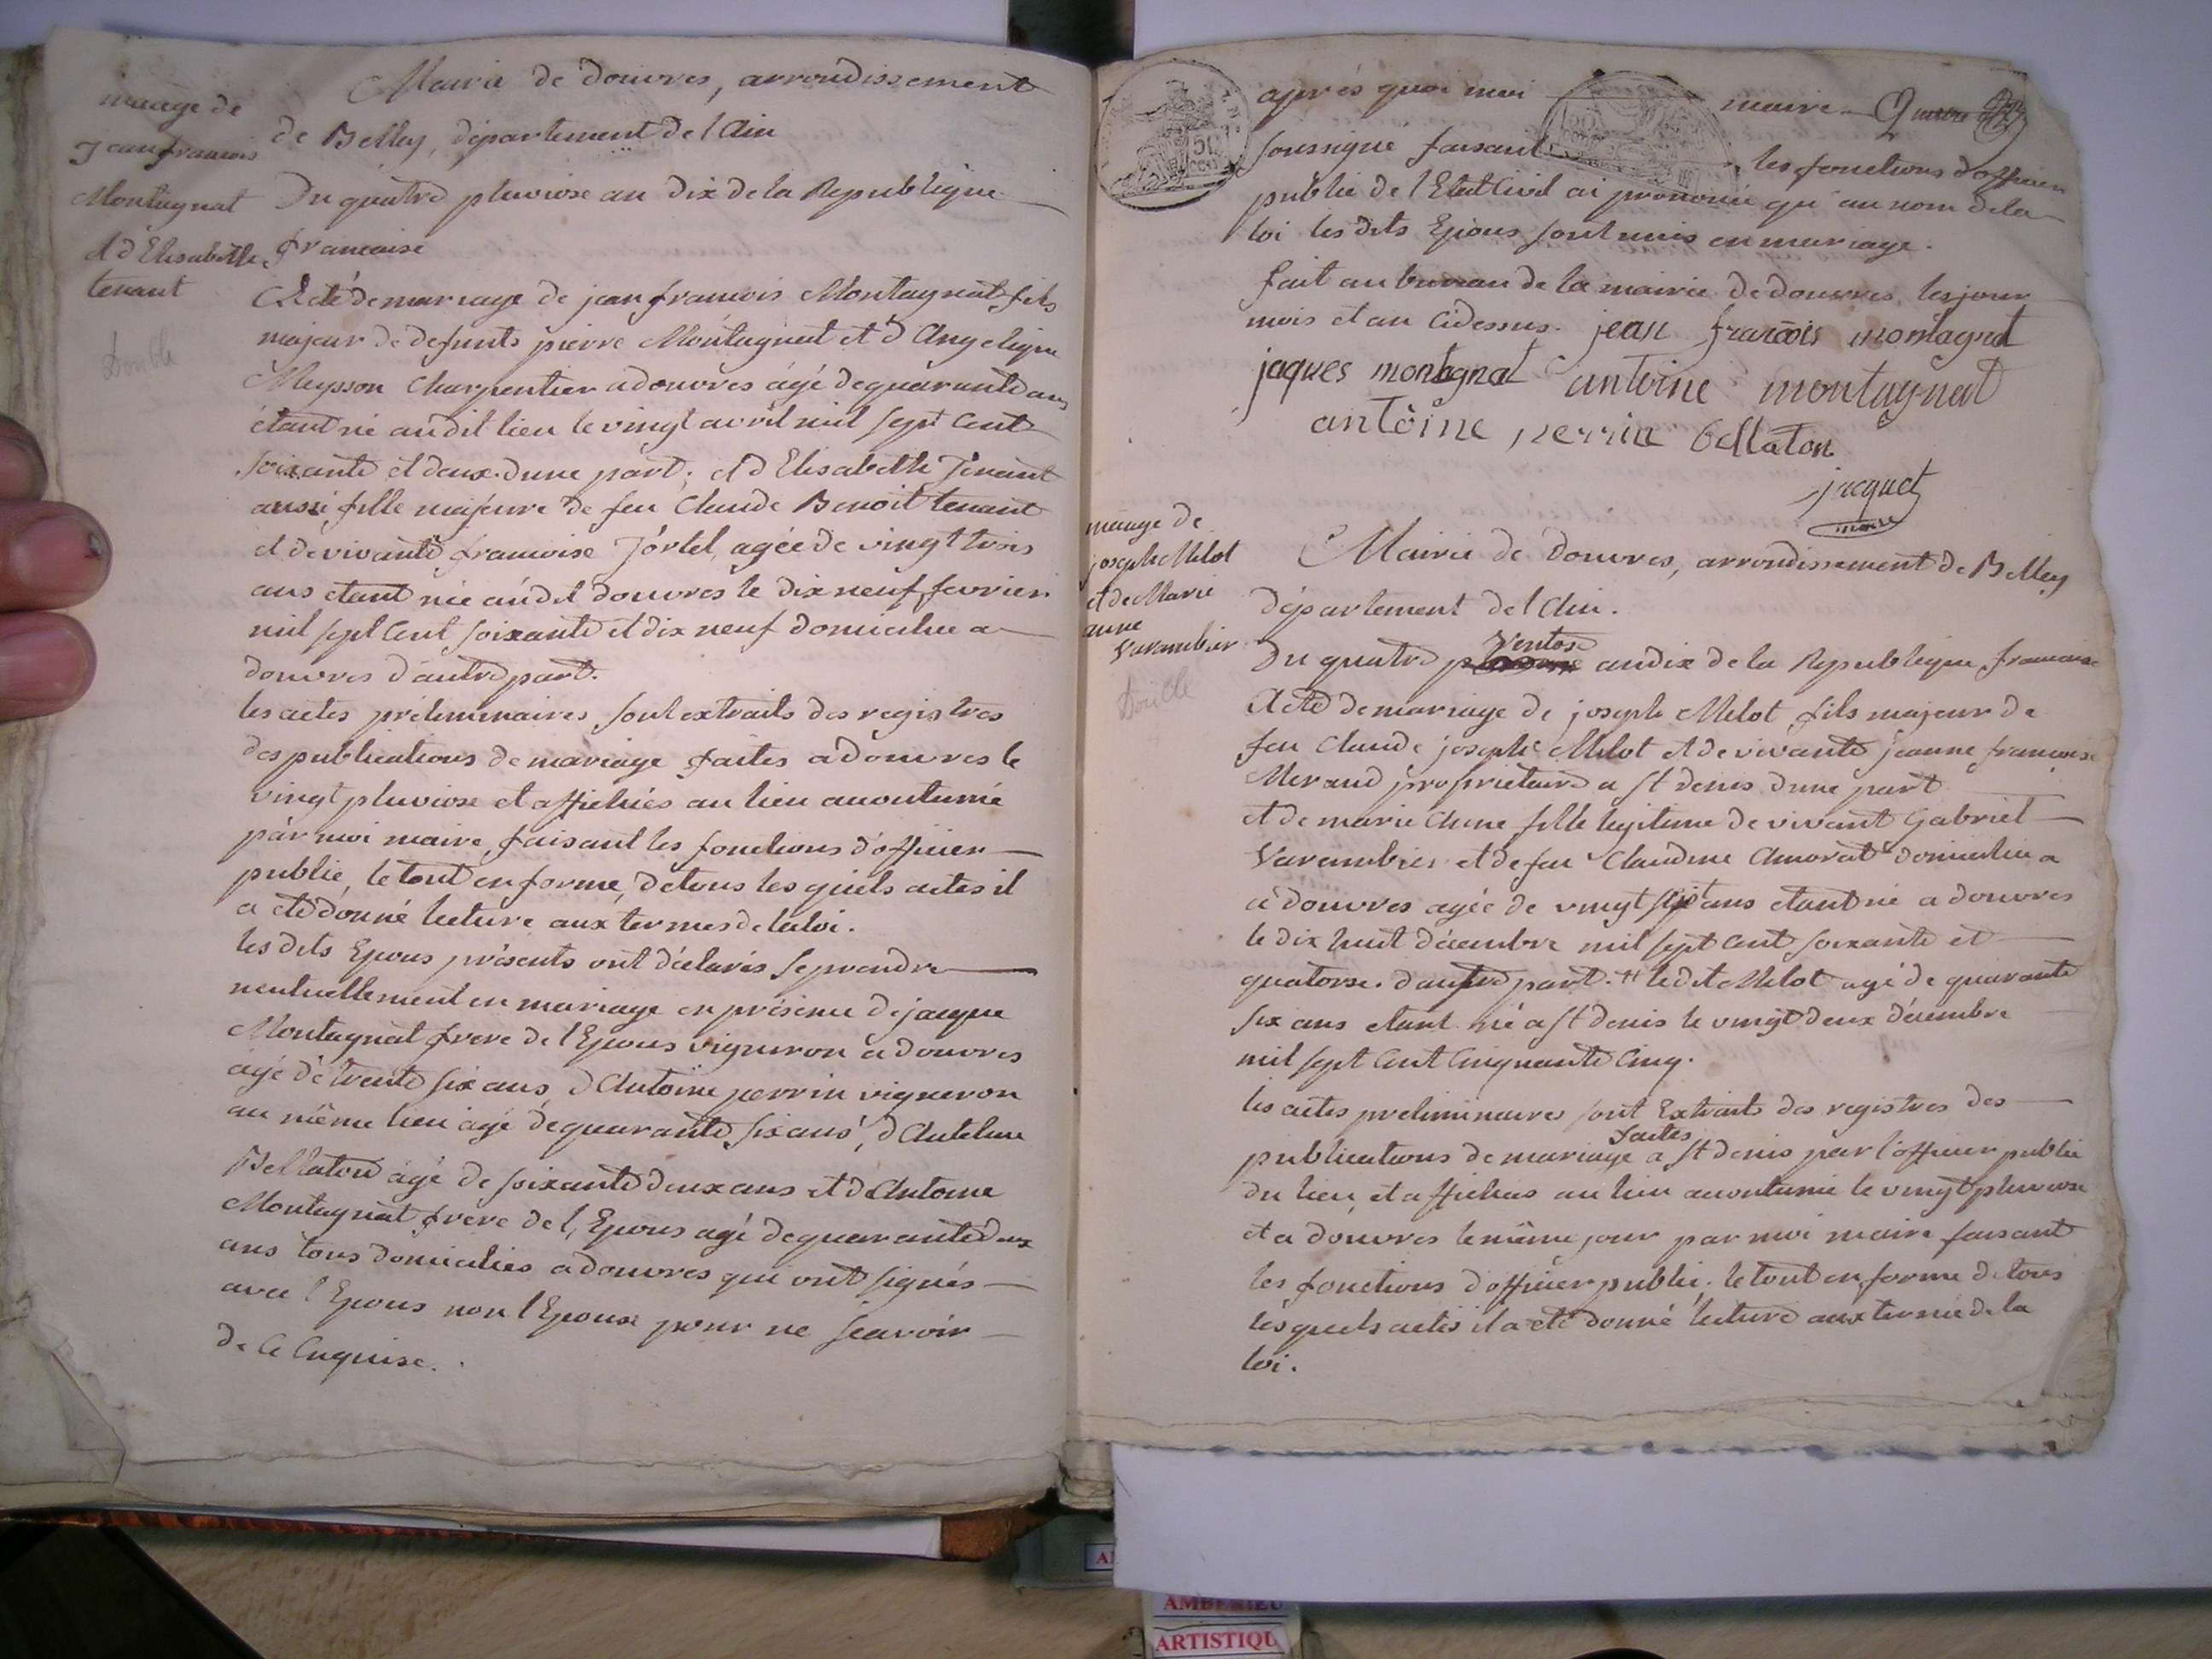 maage de
jean francois
Montagnat
et d'Elisabeth
tenant
Double
Mairie de douvres, arrondissement
de Belley, département de l'Ain
Du quatre pluviose an dix de la Republique
francaise
Acte de mariage de jean francois Montagnat fils
majeur de defunts pierre Montagnat et d'Angelique
Meysson Charpentier a douvres agé de quarante ans
étant né audit lieu le vingt avril mil sept cent
soixante et deux d'une part; et d'Elisabeth Tenant
aussi fille majeure de feu Claude Benoit tenant
et de vivante francoise Jortel, agée de vingt trois
ans etant née audit douvres le dix neuf fevrier
mil sept cent soixante et dix neuf domiciliee a
douvres d'autre part.
les actes préliminaires sont extraits des registres
des publications de mariage faites a douvres le
vingt pluviose et affichées au lieu accoutumé
par moi maire, faisant les fonctions d'officier
public, le tout en forme, de tous les quels actes il
a eté donné lecture aux termes de la loi.
les dits Epous présents ont déclarés se prendre
mutuellement en mariage en présence de jacque
Montagnat frere de l'Epous vigneron a douvres
agé de trente six ans, d'Antoine perrin vigneron
au même lieu agé de quarante six ans, d'Antelme
Bellaton agé de soixante deux ans et d'Antoine
Montagnat frere de l'Epous agé de quarante deux
ans tous domiciliés a douvres qui ont signés
avec l'Epous non l'Epouse pour ne scavoir
de ce Enquise.
après quoi moi maire
soussigné faisant les fonctions d'officier
public de l'Etat Civil ai prononcé qu'au nom de la
loi les dits Epous sont unis en mariage.
fait au bureau de la mairie de douvres, les jour
mois et an cidessus. jean francois montagnat
jaques montagnat antoine montagnat
antoine perrin bellaton
jacquet
maire
maage de
joseph Milot
et de Marie
anne
Varambier
Double
Mairie de Douvres, arrondissement de Belley
département de l'Ain.
Ventose
Du quatre an dix de la Republique francaise
Acte de mariage de joseph Milot fils majeur de
feu Claude joseph Milot et de vivante jeanne francoise
Meraud propriétaire a st denis d'une part
et de marie Anne fille legitime de vivant Gabriel
Varambier et de feu Claudine Amorat domiciliee a
a douvres agée de vingt sept ans etant né a douvres
le dix huit décembre mil sept cent soixante et
quatorse. d'autre part. # le dit Milot agé de quarante
six ans etant né a st denis le vingt deux décembre
mil sept cent Cinquante Cinq.
les actes preliminaires sont Extraits des registres des
faites
publications de mariage a st denis par l'officier public
du lieu, et affichés au lieu accoutumé le vingt pluviose
et a douvres le même jour par moi maire faisant
les fonctions d'officier public, le tout en forme de tous
lesquels actes il a eté donné lecture aux terme de la
loi.
AMBERIEU
ARTISTIQU